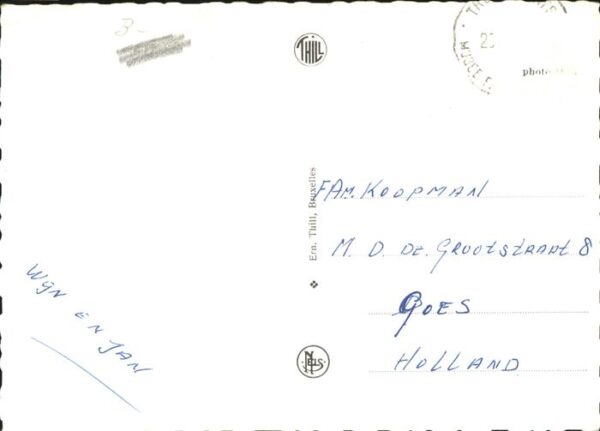 3-
THILL
photo
Ern. Thill, Bruxelles
FAM. KOOPMAN
M. D. DE. GROOTSTRAAT 8
GOES
HOLLAND
WIJN EN JAN
NELS